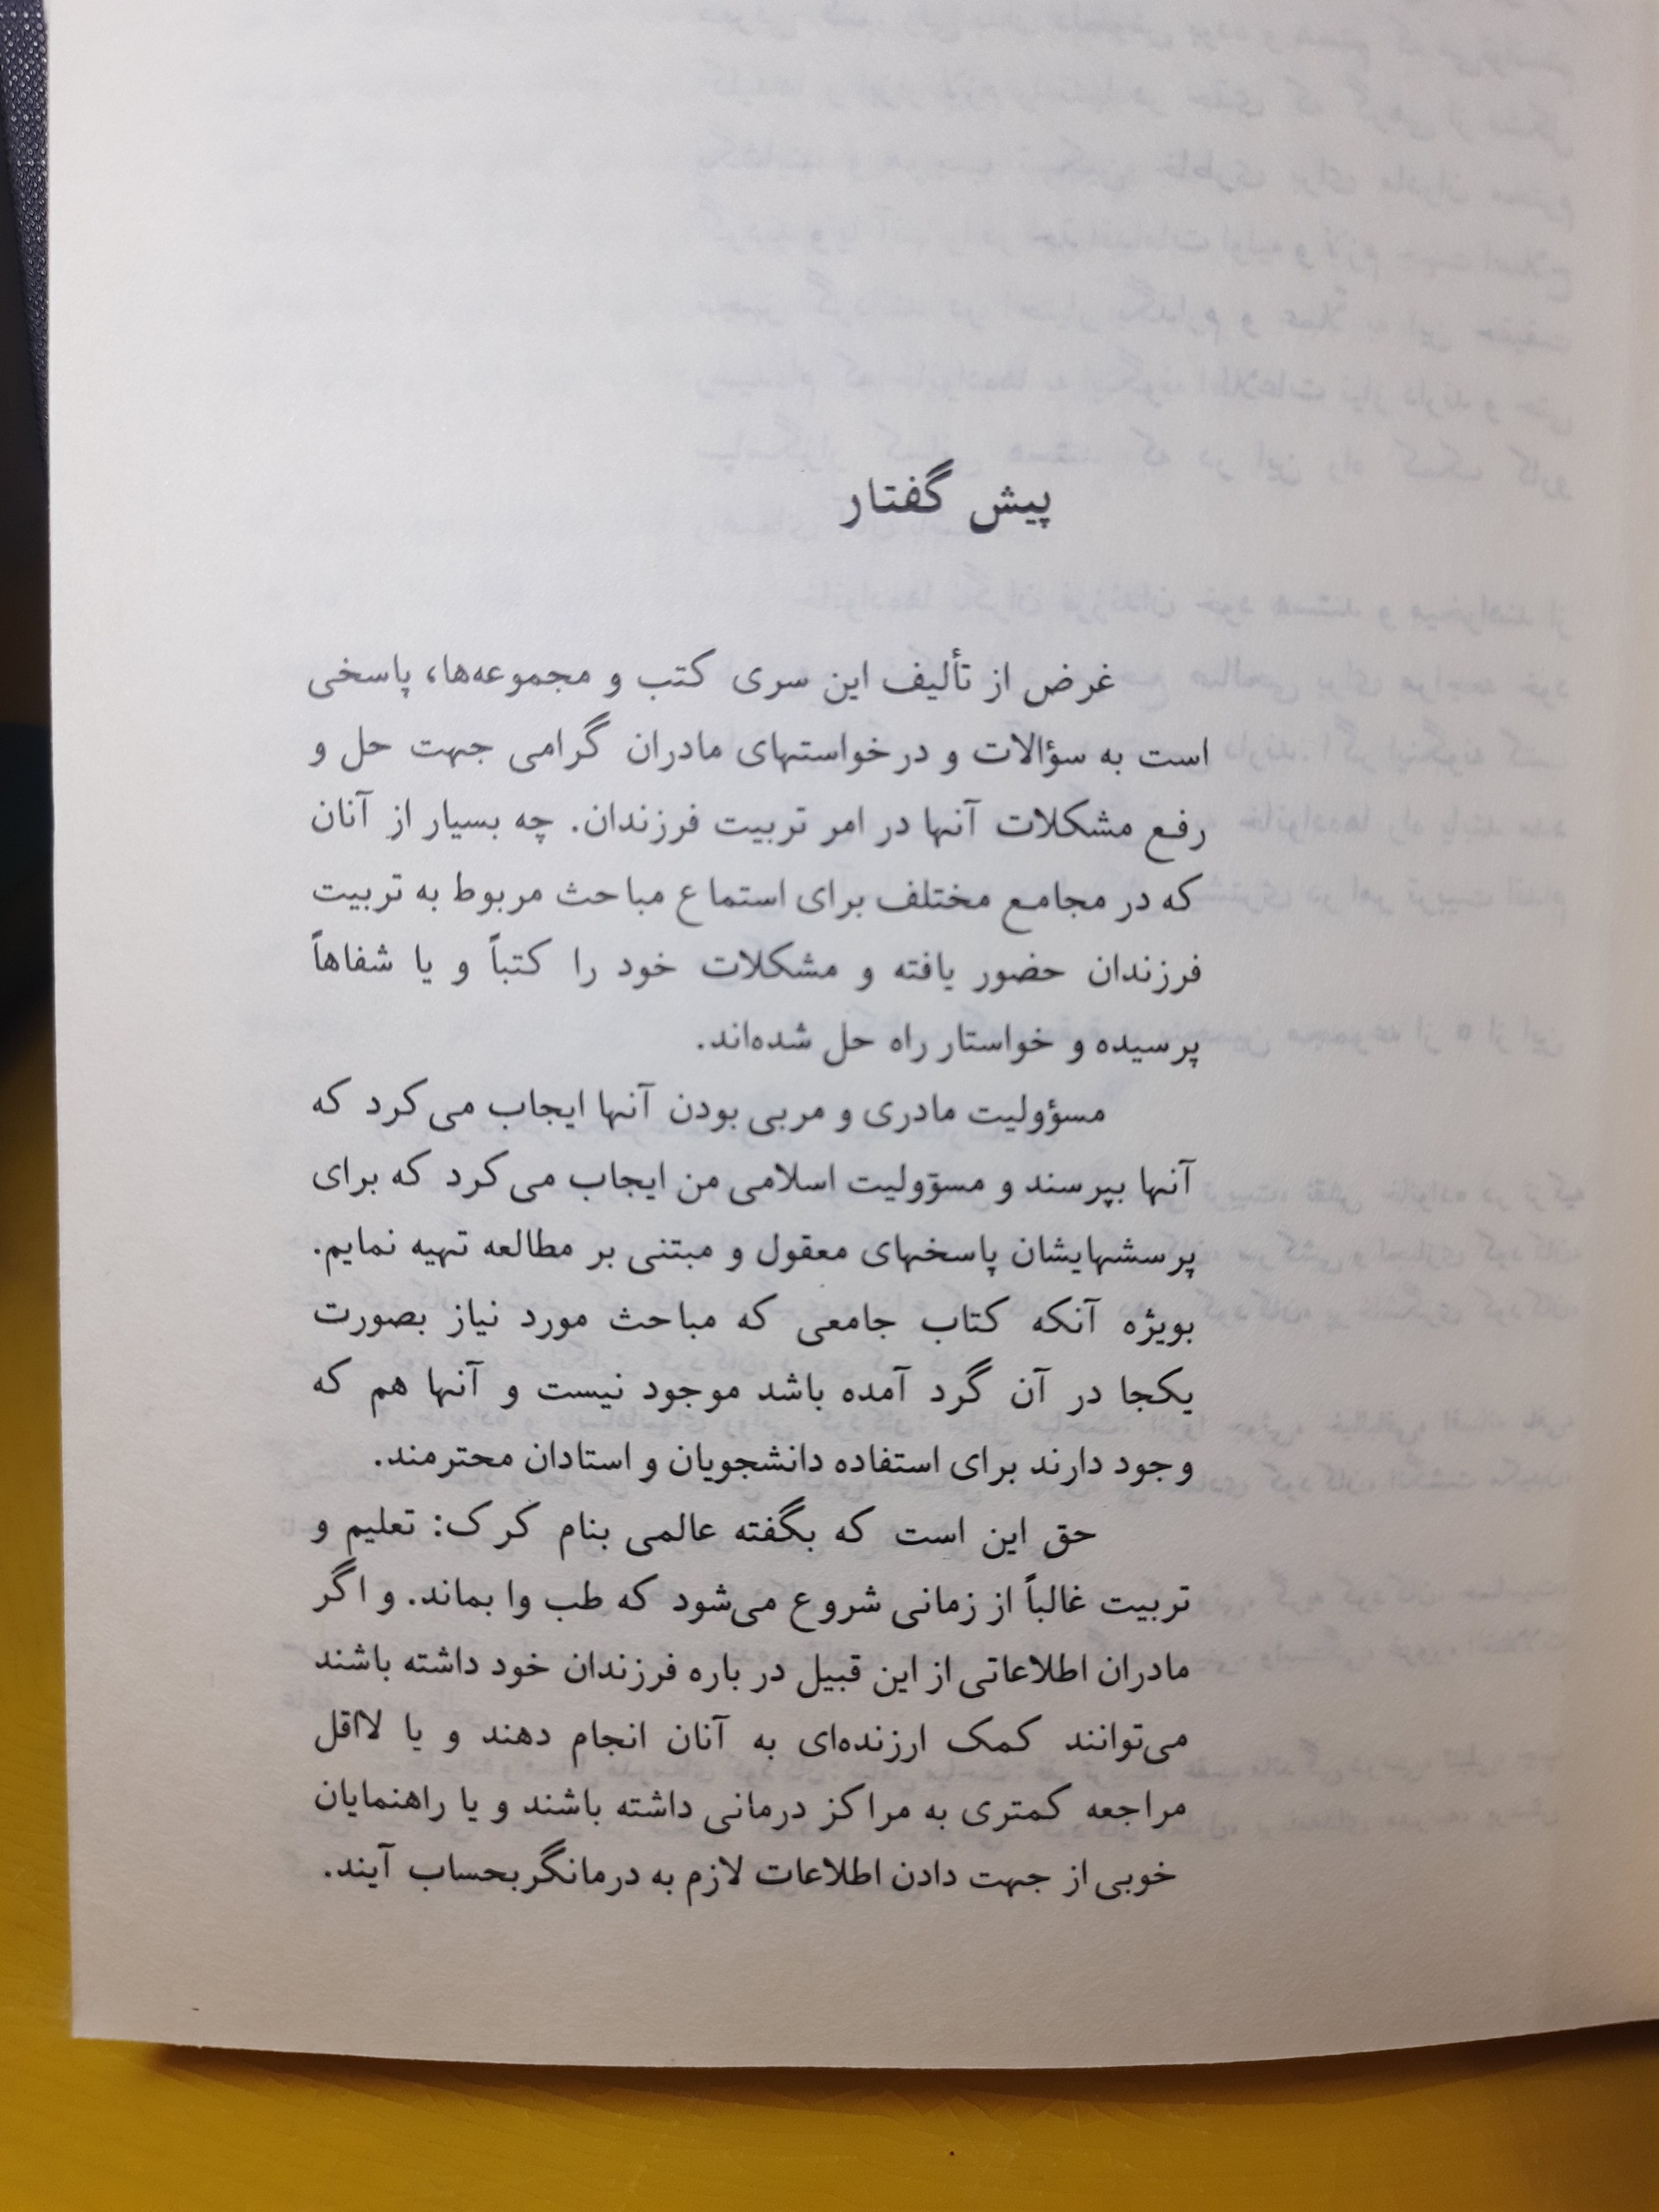 پیش گفتار
غرض از تألیف این سری کتب و مجموعه‌ها، پاسخی
است به سؤالات و درخواستهای مادران گرامی جهت حل و
رفع مشکلات آنها در امر تربیت فرزندان. چه بسیار از آنان
که در مجامع مختلف برای استماع مباحث مربوط به تربیت
فرزندان حضور یافته و مشکلات خود را کتباً و یا شفاهاً
پرسیده و خواستار راه حل شده‌اند.
مسؤولیت مادری و مربی بودن آنها ایجاب می‌کرد که
آنها بپرسند و مسؤولیت اسلامی من ایجاب می‌کرد که برای
پرسشهایشان پاسخهای معقول و مبتنی بر مطالعه تهیه نمایم.
بویژه آنکه کتاب جامعی که مباحث مورد نیاز بصورت
یکجا در آن گرد آمده باشد موجود نیست و آنها هم که
وجود دارند برای استفاده دانشجویان و استادان محترمند.
حق این است که بگفته عالمی بنام کرک: تعلیم و
تربیت غالباً از زمانی شروع می‌شود که طب وا بماند. و اگر
مادران اطلاعاتی از این قبیل در باره فرزندان خود داشته باشند
می‌توانند کمک ارزنده‌ای به آنان انجام دهند و یا لااقل
مراجعه کمتری به مراکز درمانی داشته باشند و یا راهنمایان
خوبی از جهت دادن اطلاعات لازم به درمانگر بحساب آیند.